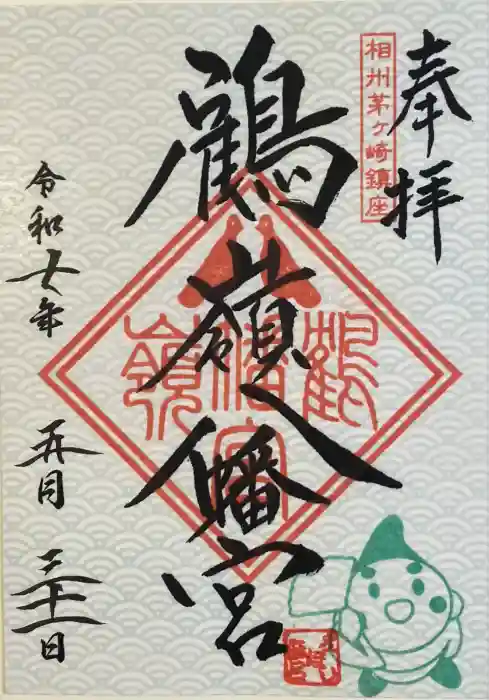 奉拝
相州茅ヶ崎鎮座
鶴嶺八幡宮
鶴
幡宮
嶺
令和七年
五月
三十一日